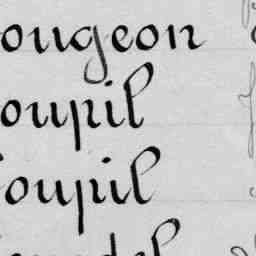 ougeon
oupil
oupil